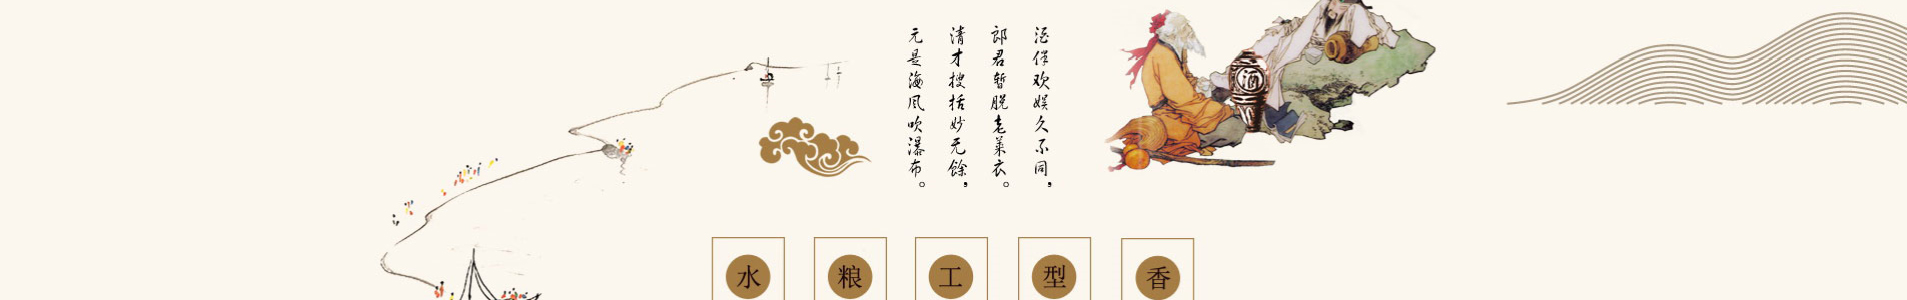 酒伴欢娱久不同，
郎君暂脱老莱衣。
清才搜括妙无馀，
元是海风吹瀑布。
酒
水
粮
工
型
香